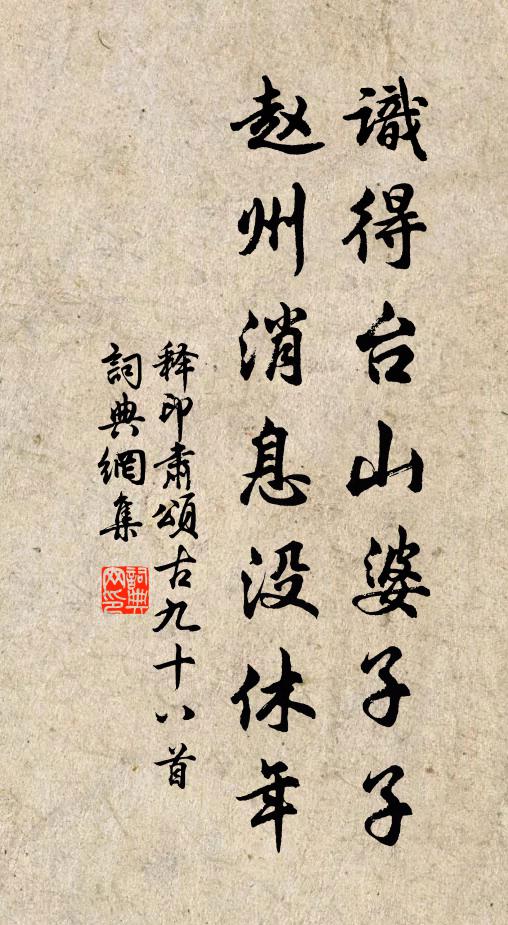 識得台山婆子子
赵州消息没休年
释印肃頌古九十八首
詞典網集
詞典网印